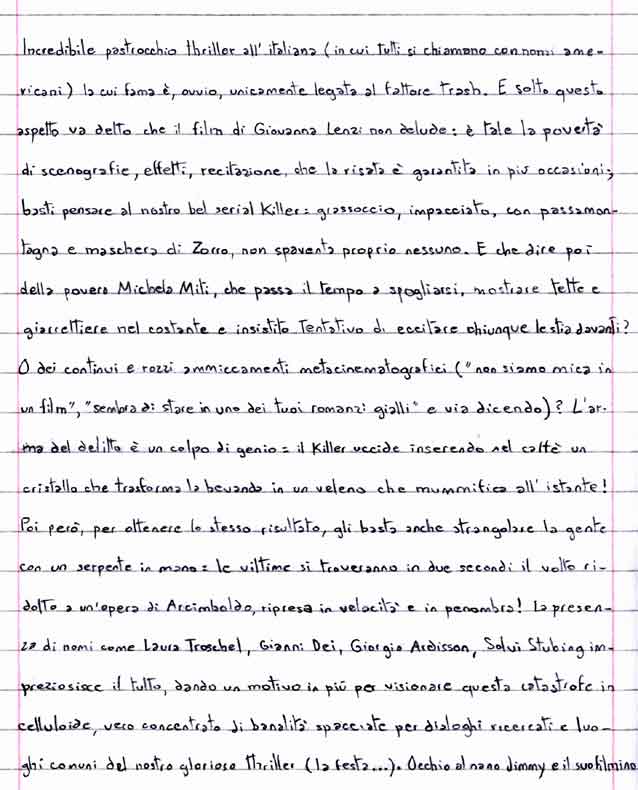 Incredibile pastrocchio thriller all'italiana (in cui tutti si chiamano con nomi ame-
ricani) la cui fama è, ovvio, unicamente legata al fattore trash. E sotto questo
aspetto va detto che il film di Giovanna Lenzi non delude: è tale la povertà
di scenografie, effetti, recitazione, che la risata è garantita in più occasioni;
basti pensare al nostro bel serial Killer: grassoccio, impacciato, con passamon-
tagna e maschera di Zorro, non spaventa proprio nessuno. E che dire poi
della povera Michela Miti, che passa il tempo a spogliarsi, mostrare tette e
giarrettiere nel costante e insistito tentativo di eccitare chiunque le stia davanti?
O dei continui e rozzi ammiccamenti metacinematografici ("non siamo mica in
un film", "sembra di stare in uno dei tuoi romanzi gialli" e via dicendo)? L'ar-
ma del delitto è un colpo di genio: il Killer uccide inserendo nel caffè un
cristallo che trasforma la bevanda in un veleno che mummifica all'istante!
Poi però, per ottenere lo stesso risultato, gli basta anche strangolare la gente
con un serpente in mano: le vittime si troveranno in due secondi il volto ri-
dotto a un'opera di Arcimboldo, ripresa in velocità e in penombra! La presen-
za di nomi come Laura Troschel, Gianni Dei, Giorgio Ardisson, Solvi Stubing im-
preziosisce il tutto, dando un motivo in più per visionare questa catastrofe in
celluloide, vero concentrato di banalità spacciate per dialoghi ricercati e luo-
ghi comuni del nostro glorioso thriller (la festa...). Occhio al nano Jimmy e il suo filmino